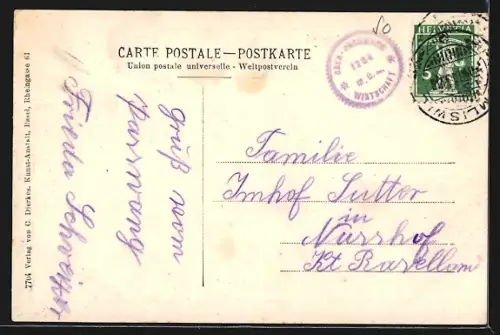 50
CARTE POSTALE—POSTKARTE
Union postale universelle - Weltpostverein
OBER-PASSWANG
1204
M.ü.M.
WIRTSCHAFT
HELVETIA
5
Familie
Imhof Sutter
in
Nusshof
Kt Baselland
Gruß vom
Passwang
Frieda
7764 Verlag von C. Dierkes, Kunst-Anstalt, Basel, Rheingasse 61